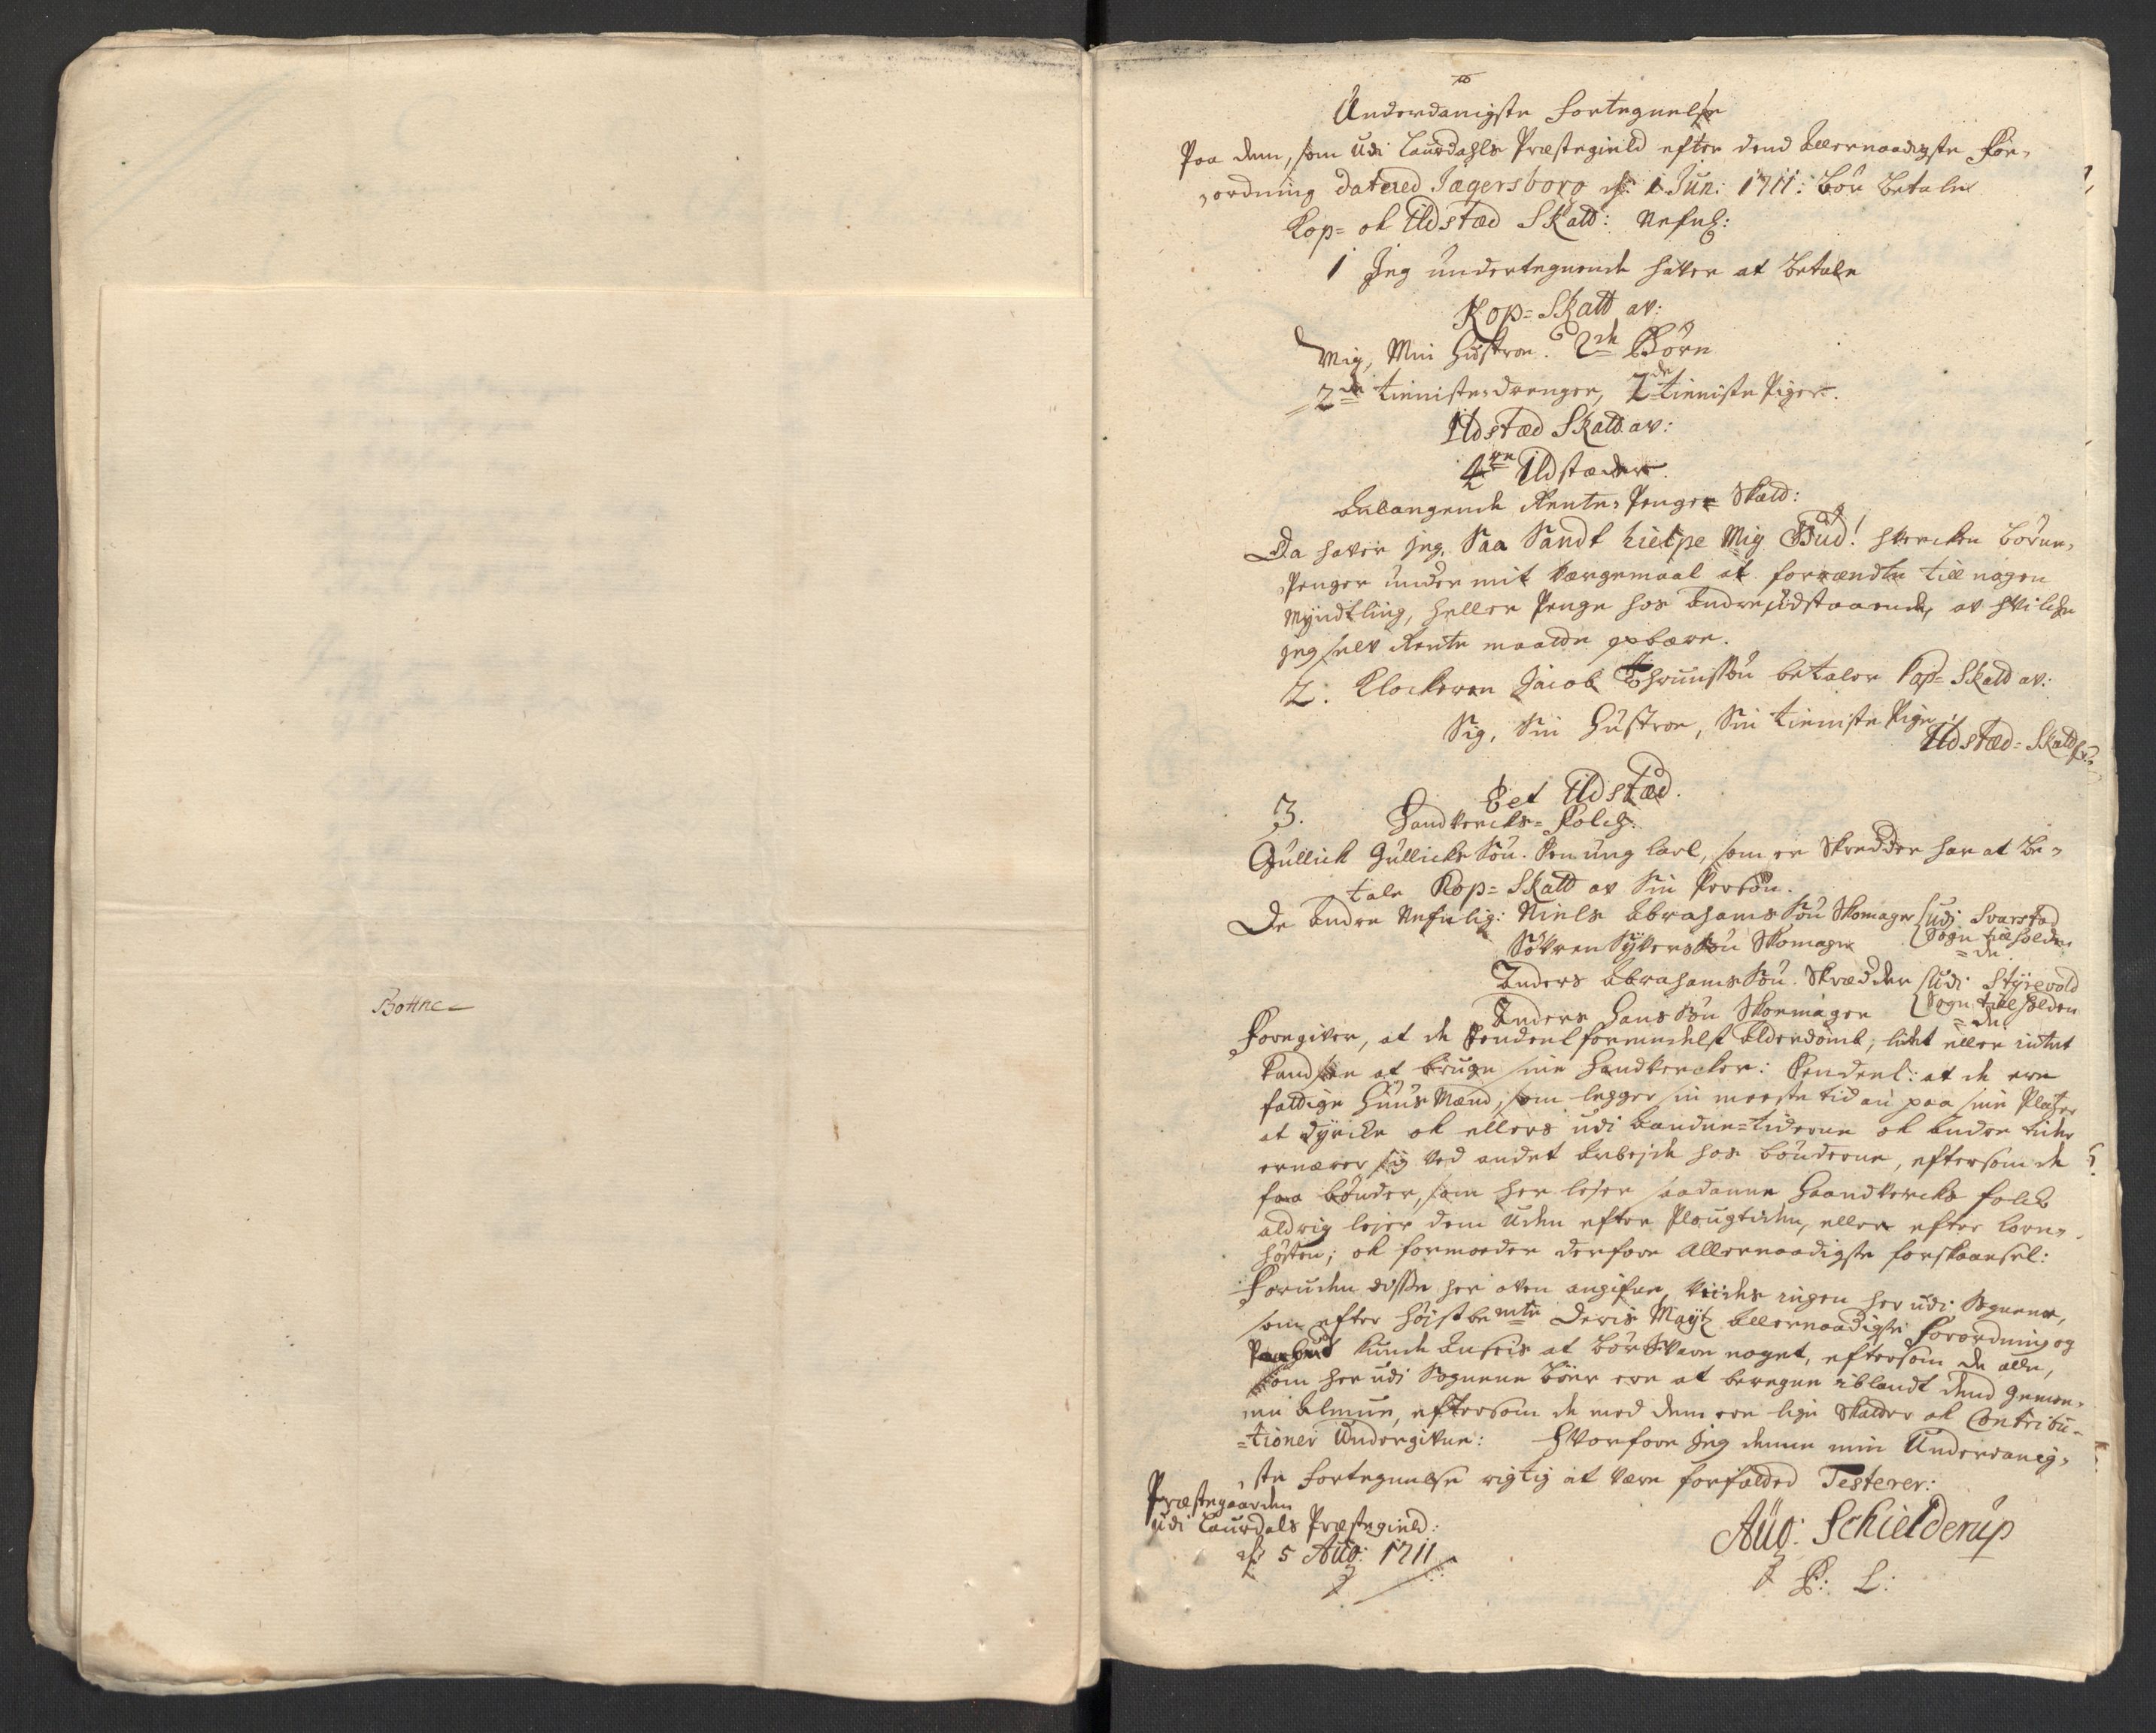 Bonne
Underdanigste Fortegnelse
Paa dem, som udi Laurdahls Præstegield efter dend Allernaadigste For-
ordning datered Jægersborg d: 1 Jun: 1711: bør betale
Kop= ok Ildstæd Skatt: Nefnl:
1 Jeg undertegnende haver at betale
Kop=Skatt av:
Mig, Min Hustroe. 2de Børn
2de tienistedrenger, 2de tieniste Piger.
Ildstæd Skatt av:
4re Ildstæder.
Belangende Rente-Penger Skatt:
Da haver jeg, Saa Sandt hielpe Mig Gud! hvercken børne-
Penger under mit Værgemaal at forrændte till nogen
Myndtling, heller Penge hos andre udstaaende, av hvilche
jeg selv Rente maatte opbære.
2. Klockeren Jacob betaler Kop=Skatt av:
Sig, Sin Hustroe, Sin tieniste Pige,
Ildstæd=Skatt
Eet Ildstæd.
3. Handtvercks=Folch:
Gullich Gullichs Søn. Een ung Karl, som er Skredder har at be-
tale Kop=Skatt av Sin Persön.
De andre Nefnlig: Niels Abrahams Søn Skomager udi Svarstad
Sogn till holden-
Søvren Syvers Søn Skomager =de
Anders Abrahams Søn. Skrædder udi Styrevold
Sogn till holden
Anders Hans Søn Skomager =de
Foregiver, at de Eendeel formedelst Alderdomb, lidet eller intet
kand see at bruge sine Handtvercker: Eendeel: at de ere
fattige Huus Mænd, som legger sin meeste tid an paa sine Platzer
at dyrcke ok ellers udi Aandne=tiderne ok andre tider
ernærer sig ved andet Arbejde hos bønderne, eftersom de
faa bønder, som her lejer saadanne Haandtvercks folck
aldrig lejer dem uden efter Plougtiden, eller efter Korn-
høsten; ok formoeder derfore Allernaadigste forskaansel:
Foruden disse her oven angifne, vides ingen her udi Sognene,
som efter højstbemte Deris Maytz Allernaadigste Forordning og
Paabud kunde ansees at bør Svare noget, eftersom de alle,
som her udi Sognene boer ere at beregne iblandt dend gemee-
ne Almue, eftersom de med dem ere lige Skatter ok Contribu-
=tioner Undergivne: Hvorfore Jeg denne min Underdanig-
ste Fortegnelse rigtig at være forfatted Testerer:
Præstegaarden
udi Laurdals Præstegield:
d: 5 Aug: 1711
Aug: Schielderup
P: L: